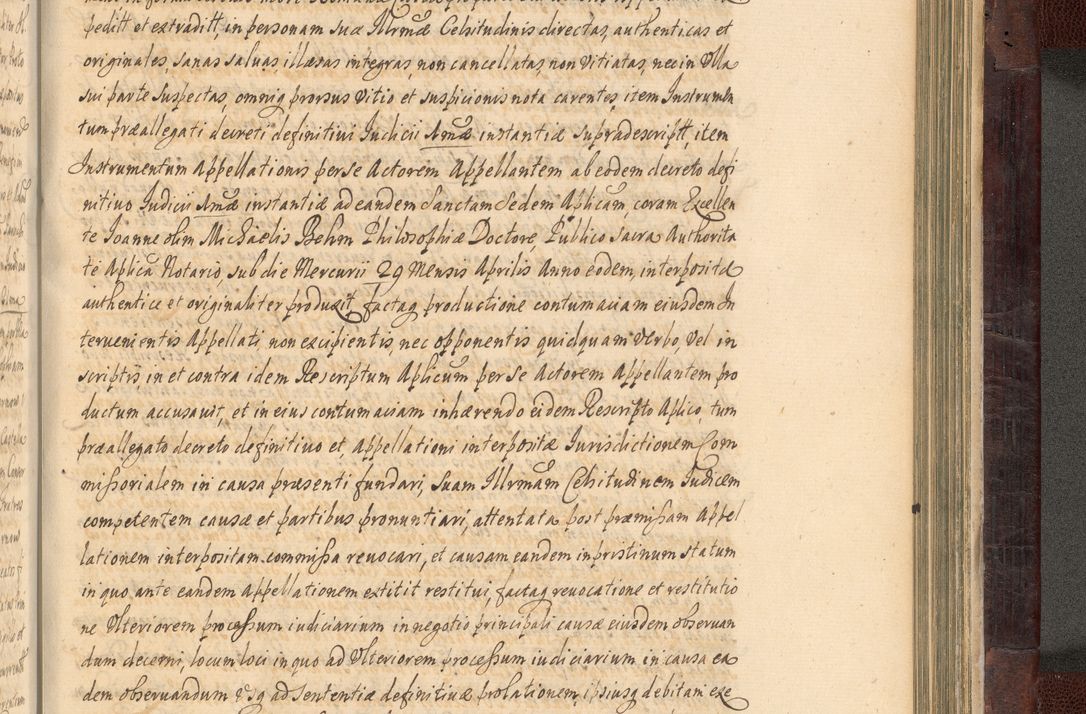 peditt et extraditt, in personam suæ Illrmæ Celsitudinis directas, authenticas et
originales, sanas saluas, illæsas integras, non cancellatas, non vitiatas, nec in Vlla
sui parte suspectas, omniq prorsus vitio et suspicionis nota carentes, item Instrumen
tum præallegati decreti definitiui Iudicii Amæ instantiæ supradescriptt, item
Instrumentum Appellationis per se Actorem Appellantem ab eodem decreto defi
nitiuo Iudicii Amæ instantiæ ad eandem Sanctam Sedem Aplicam, coram Excellen
te Ioanne olim Michaelis Behm Philosophiæ Doctore Publico sacra Authorita
te Aplica Notario, sub die Mercurii 29 Mensis Aprilis Anno eodem, interpositæ
authentice et originaliter produxit, factaq productione contumaciam eiusdem In
teruenientis Appellati non excipientis, nec opponentis quidquam Verbo, Vel in
scriptis, in et contra idem Rescriptum Aplicum per se Actorem Appellantem pro
ductum accusauit, et in eius contumaciam inhærendo eidem Rescripto Aplico, tum
præallegato decreto definitiuo et Appellationi interpositæ Iurisdictionem Com
missorialem in causa præsenti fundari, Suam Illrmam Celsitudinem Iudicem
competentem causæ et partibus pronuntiari, attentata post præmissam Appel
lationem interpositam commissa reuocari, et causam eandem in pristinum statum
in quo ante eandem Appellationem extitit restitui, factaq reuocatione et restitutio
ne Vlteriorem processum iudiciarium in negotio principali causæ eiusdem obseruan
dum decerni, locum loci in quo ad Vlteriorem processum iudiciarium in causa ea
dem obseruandum Vsq ad sententiæ definitiuæ prolationem, ipsiusq debitam exe